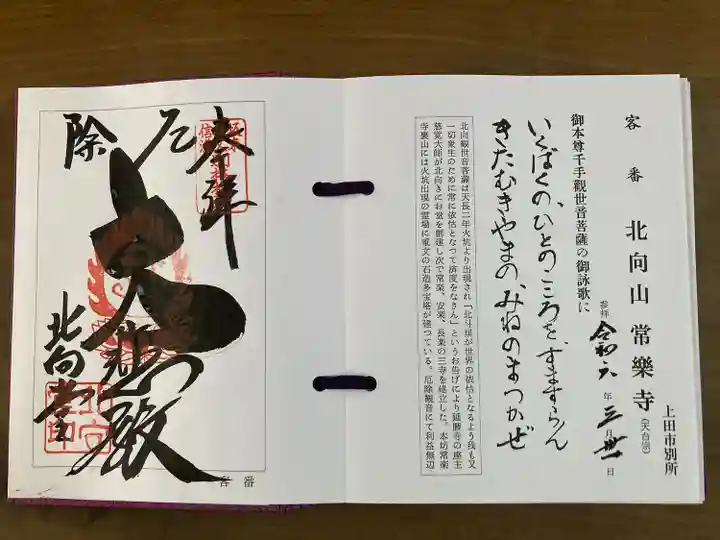 客番　北向山　常樂寺
上田市別所
(天台宗)
参拝　令和六年三月卅一日
御本尊千手観世音菩薩の御詠歌に
いくばくの、ひとのこころを、すますらん
きたむきやまの、みねのまつかぜ
北向観世音菩薩は天長二年火坑より出現され「北斗星が世界の依怙となるよう我も又
一切衆生のために常に依怙となつて済度をなさん」というお告げにより延暦寺の座主
慈覚大師が北向きにお堂を創建し次で常楽、安楽、長楽の三寺を建立した。本坊常楽
寺裏山には火坑出現の霊場に重文の石造多宝塔が建つている。厄除観音にて利益無辺
奉拝
厄
除
大悲殿
北向堂
客番